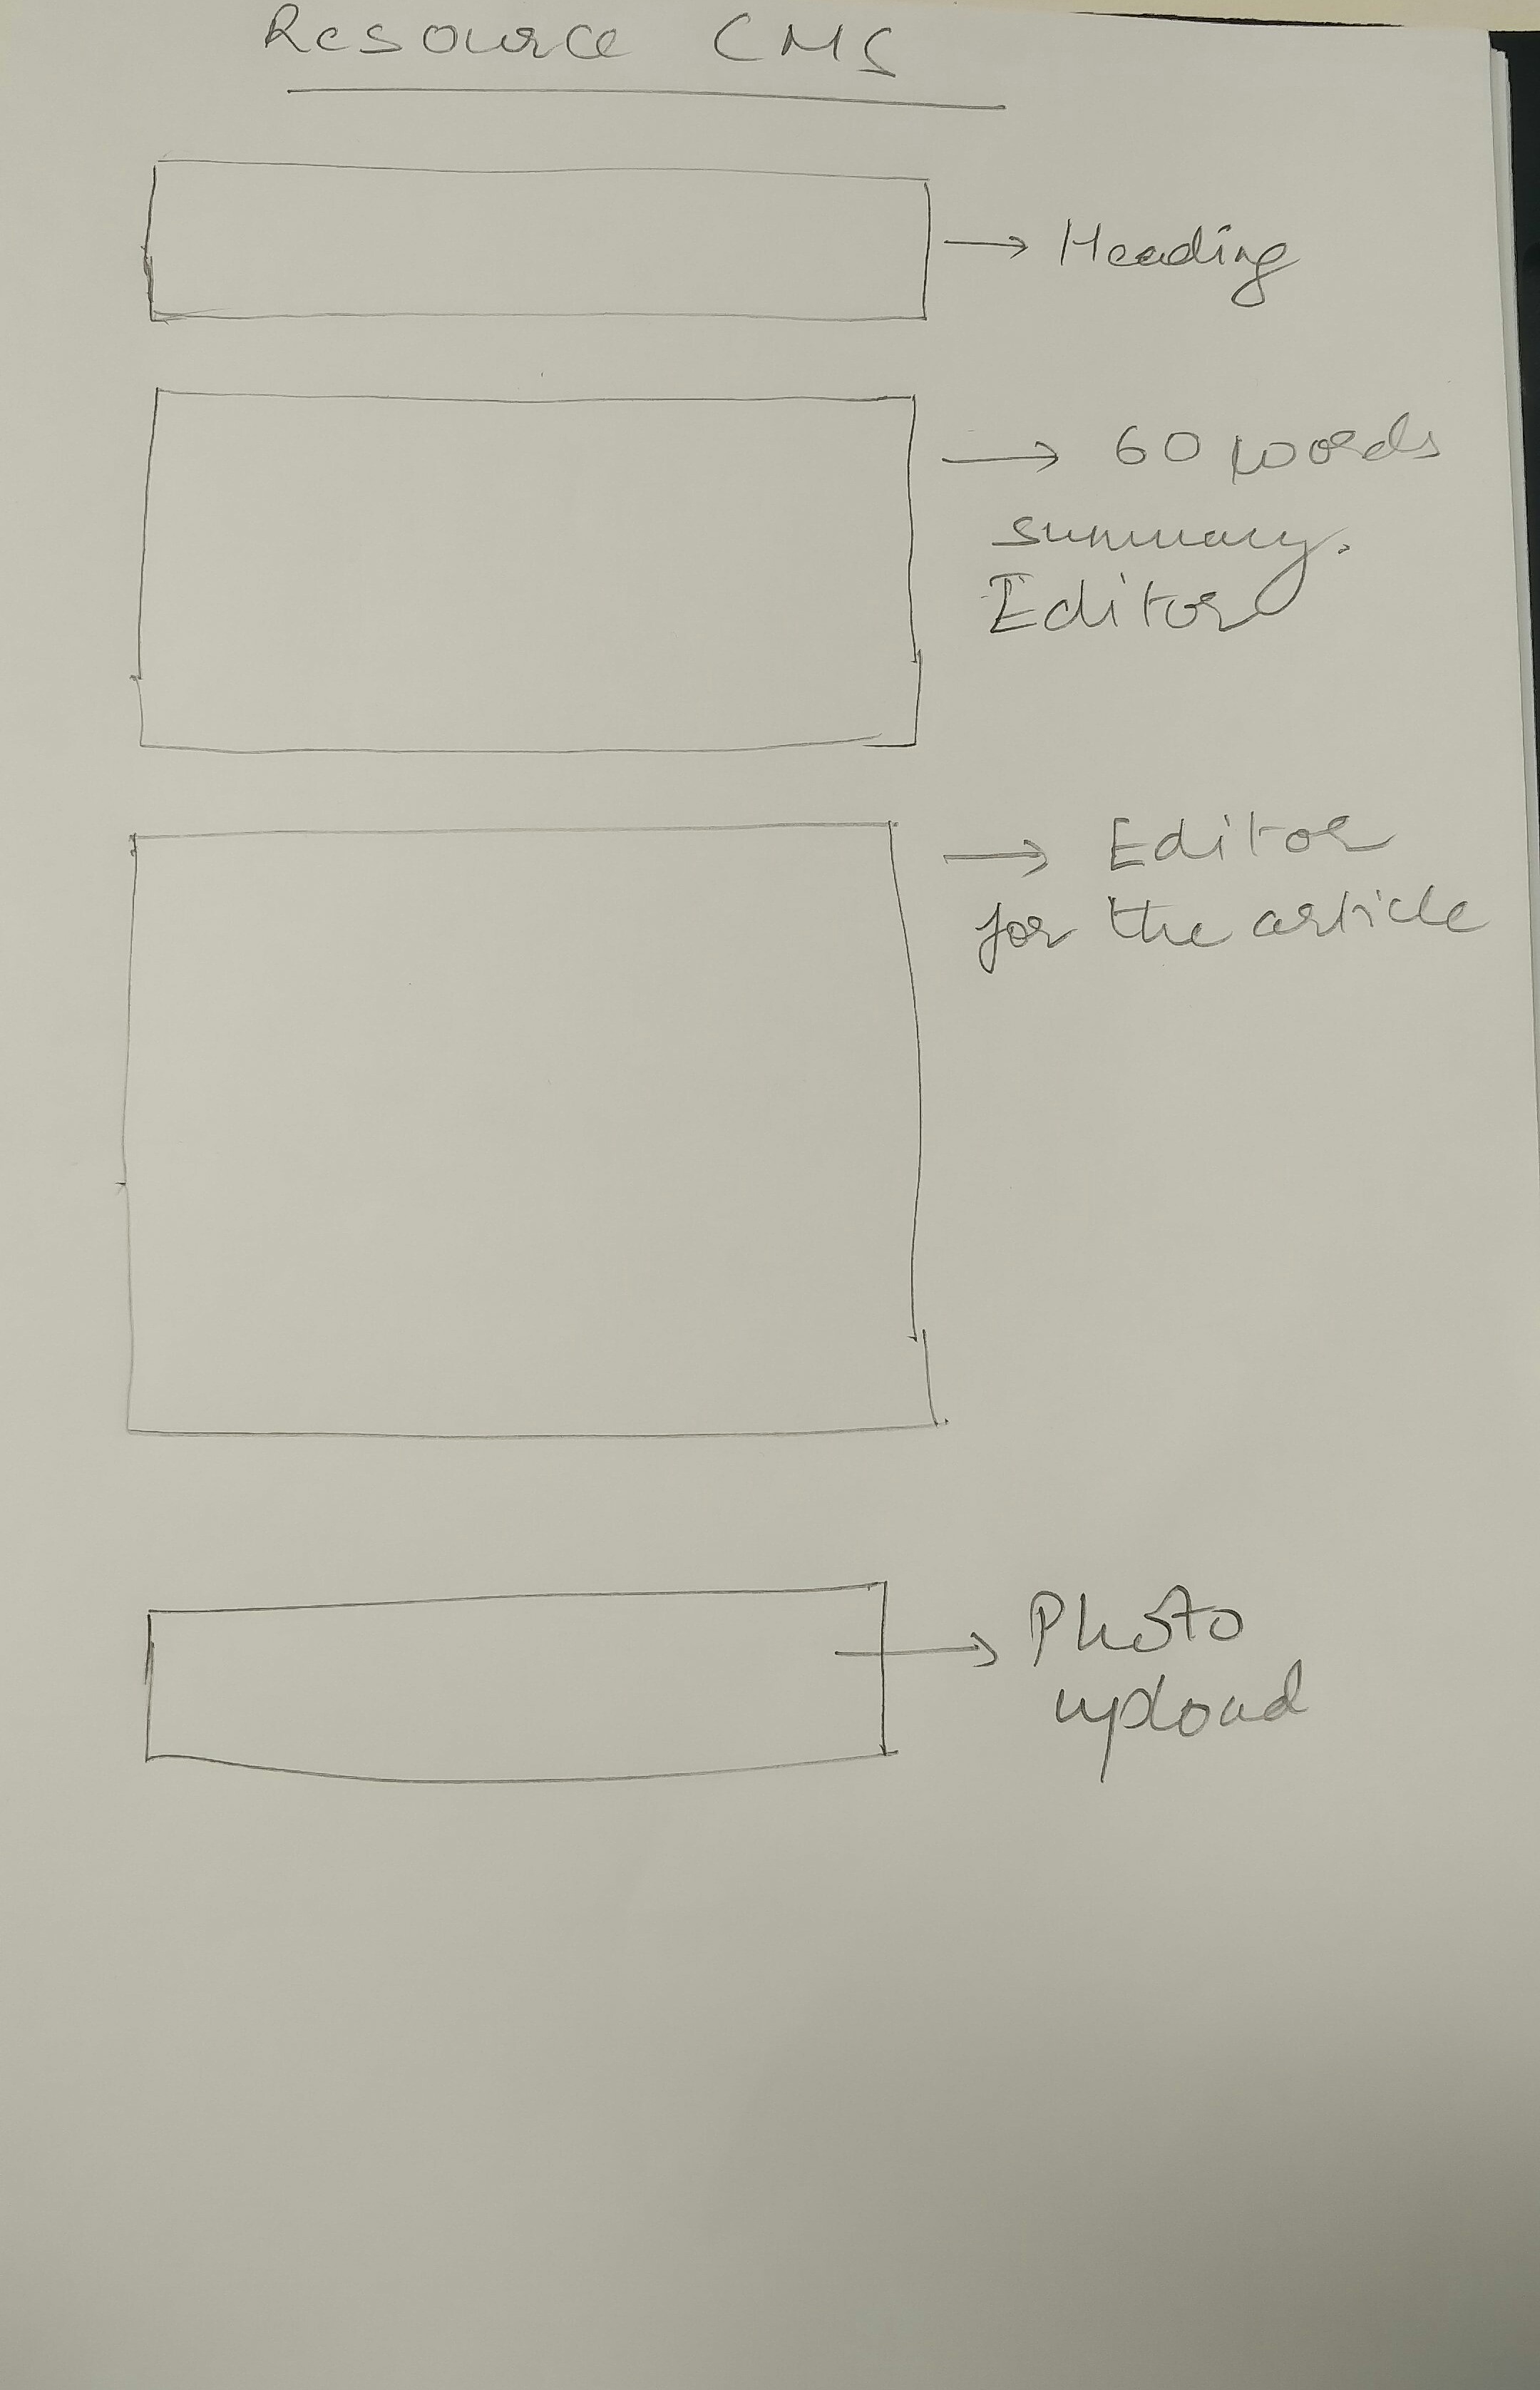 Resource CMS
→ Heading
→ 60 words
summary.
Editor
→ Editor
for the article
→ Photo
upload